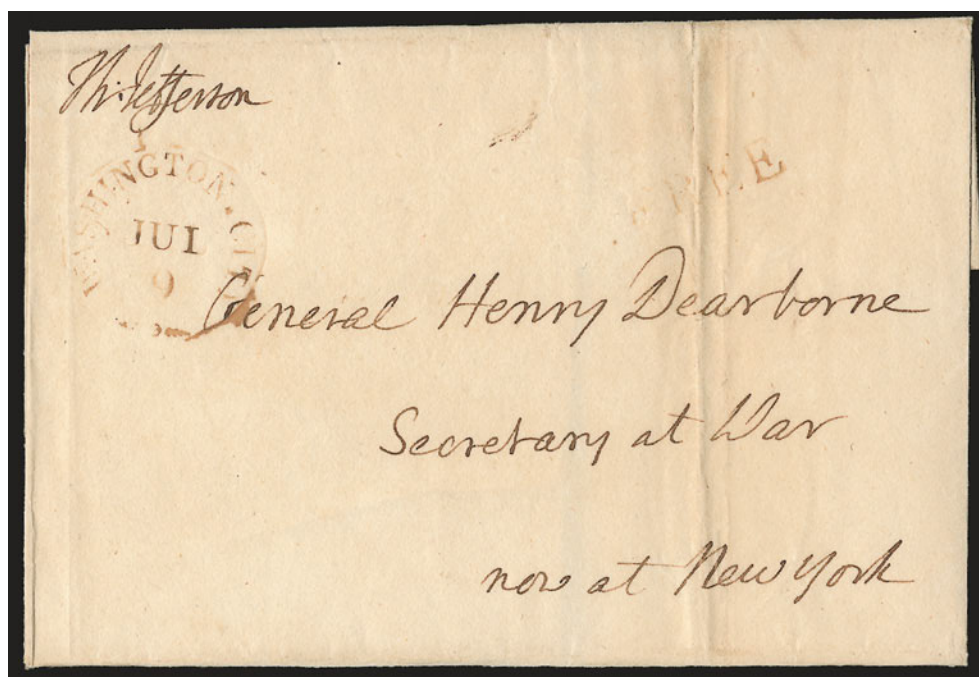 Th: Jefferson
WASHINGTON. CITY
JUL
9
FREE
General Henry Dearborne
Secretary at War
now at New York